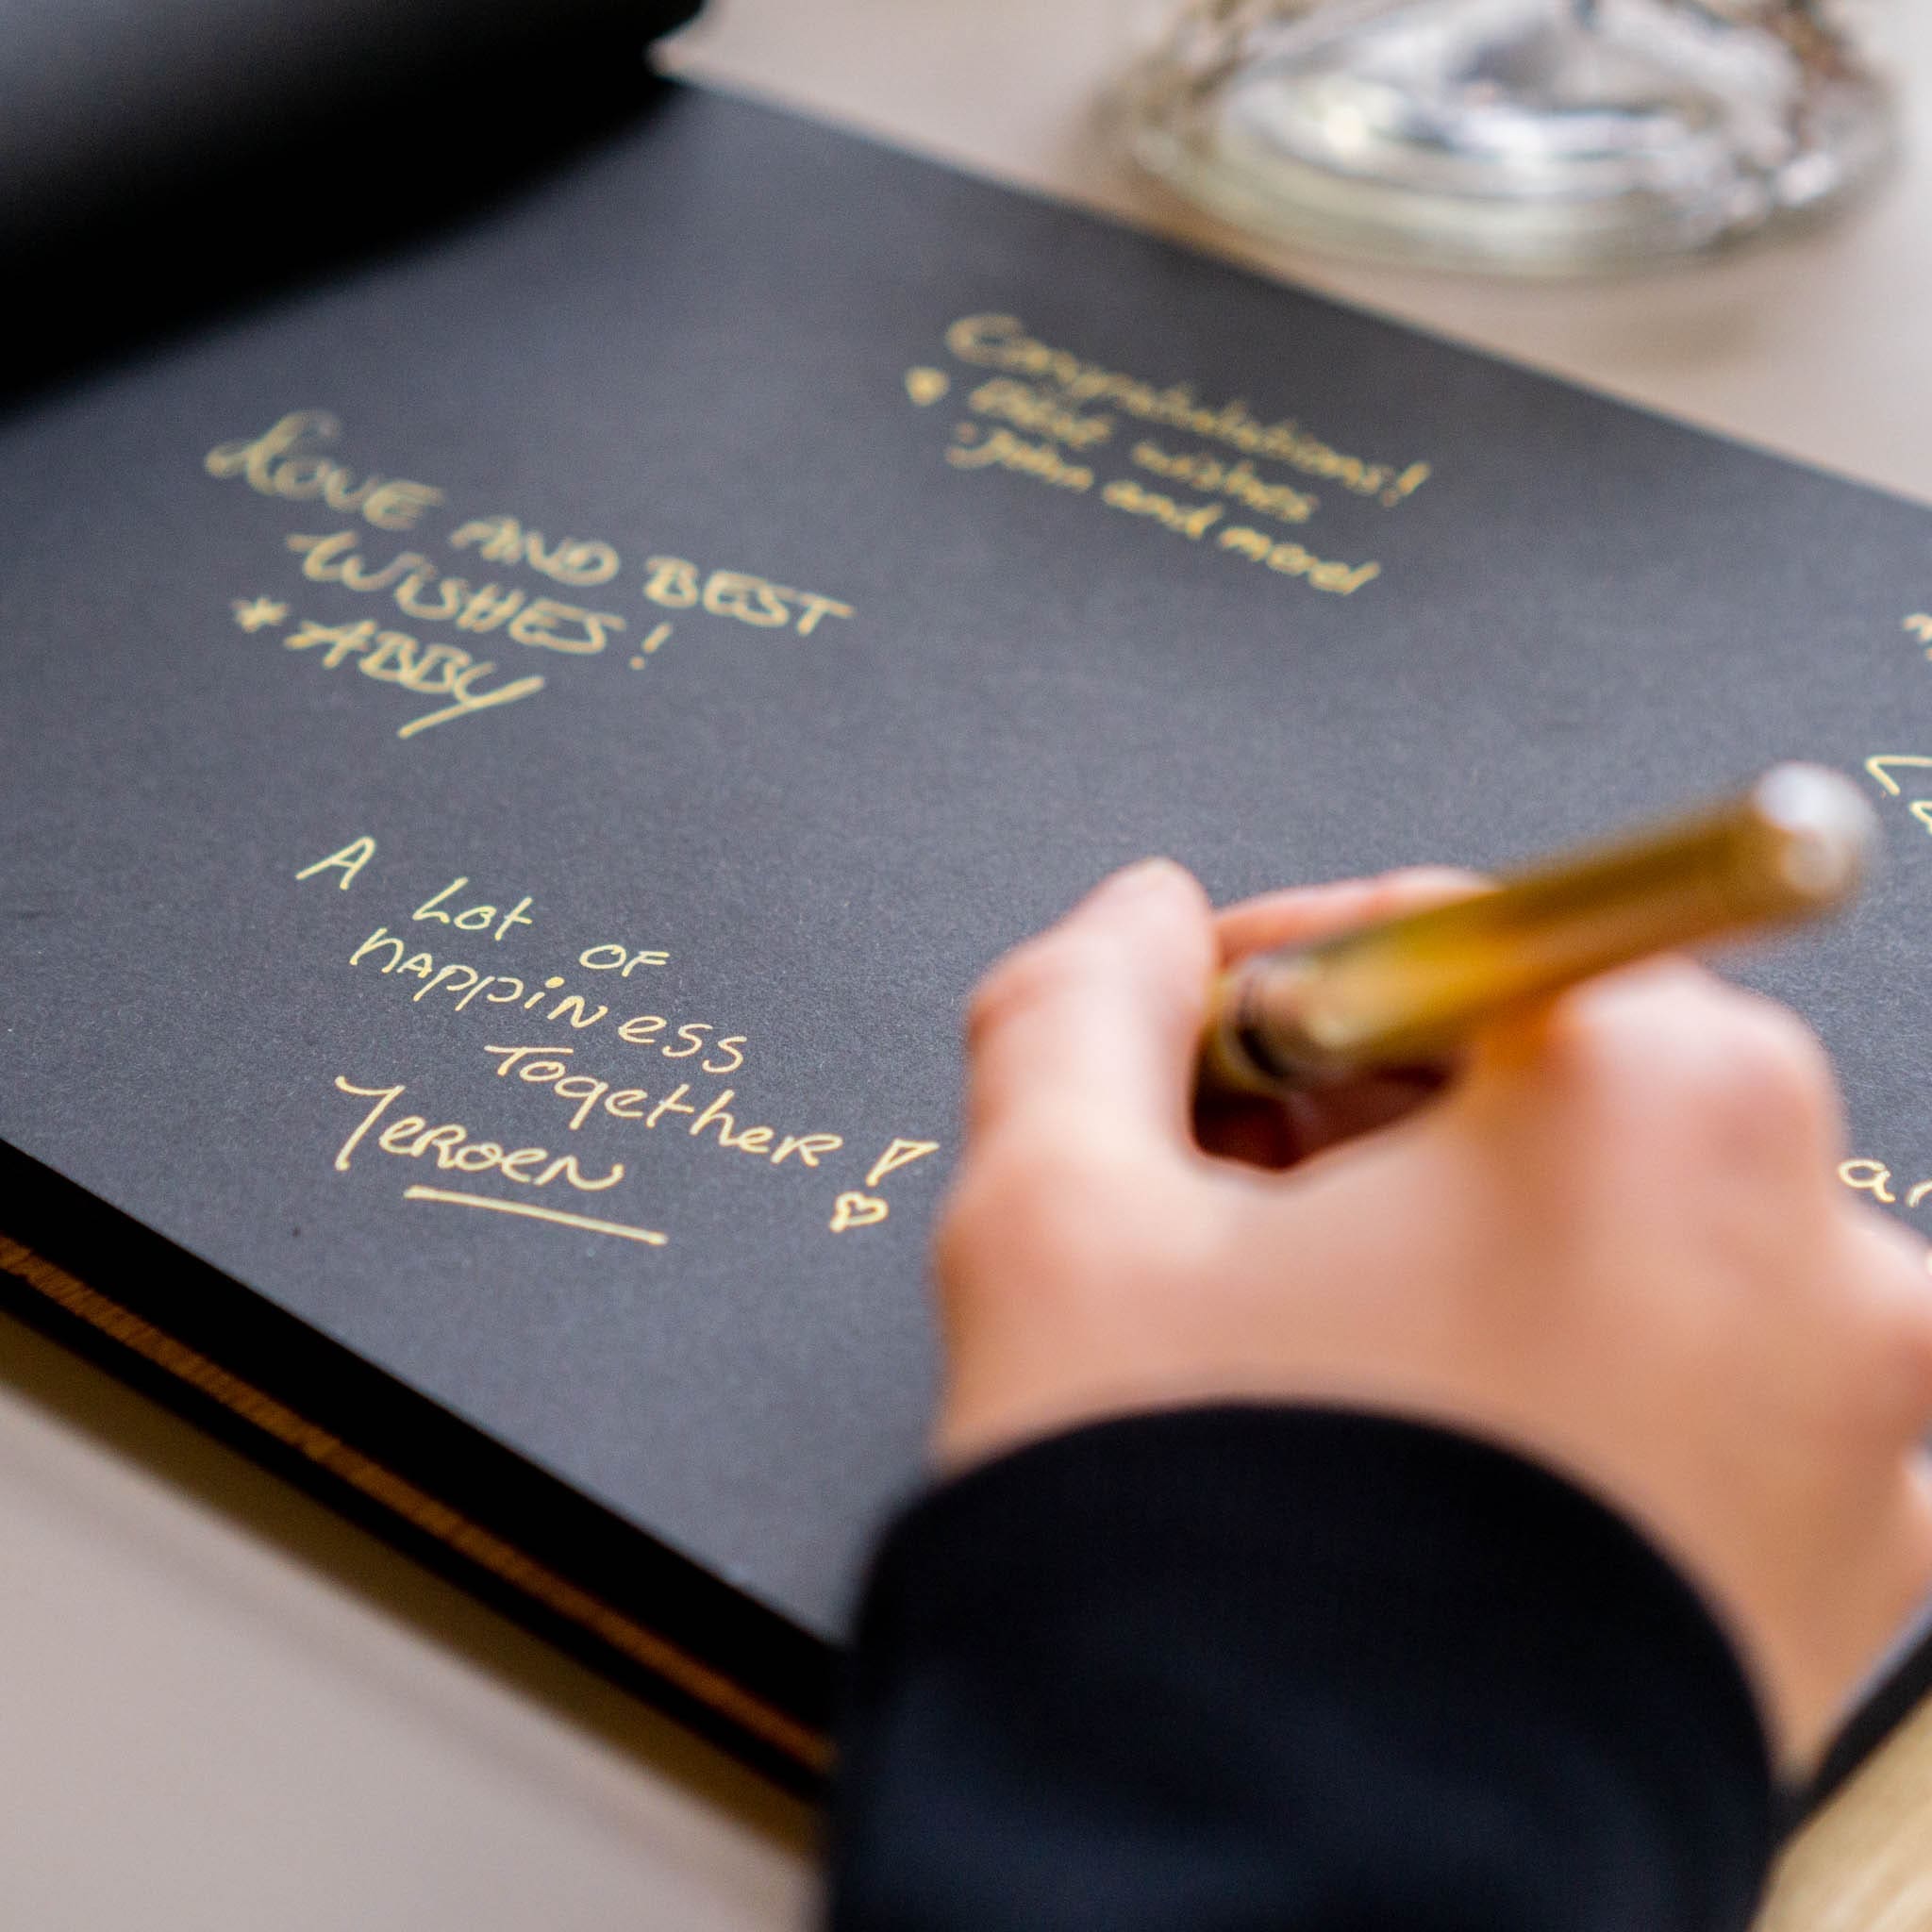 Love AND BEST
WISHES!
* ABBY
Congratulations!
♥ Best wishes
John and more!
A Lot OF
HAPPINESS
TOGETHER!
JEROEN